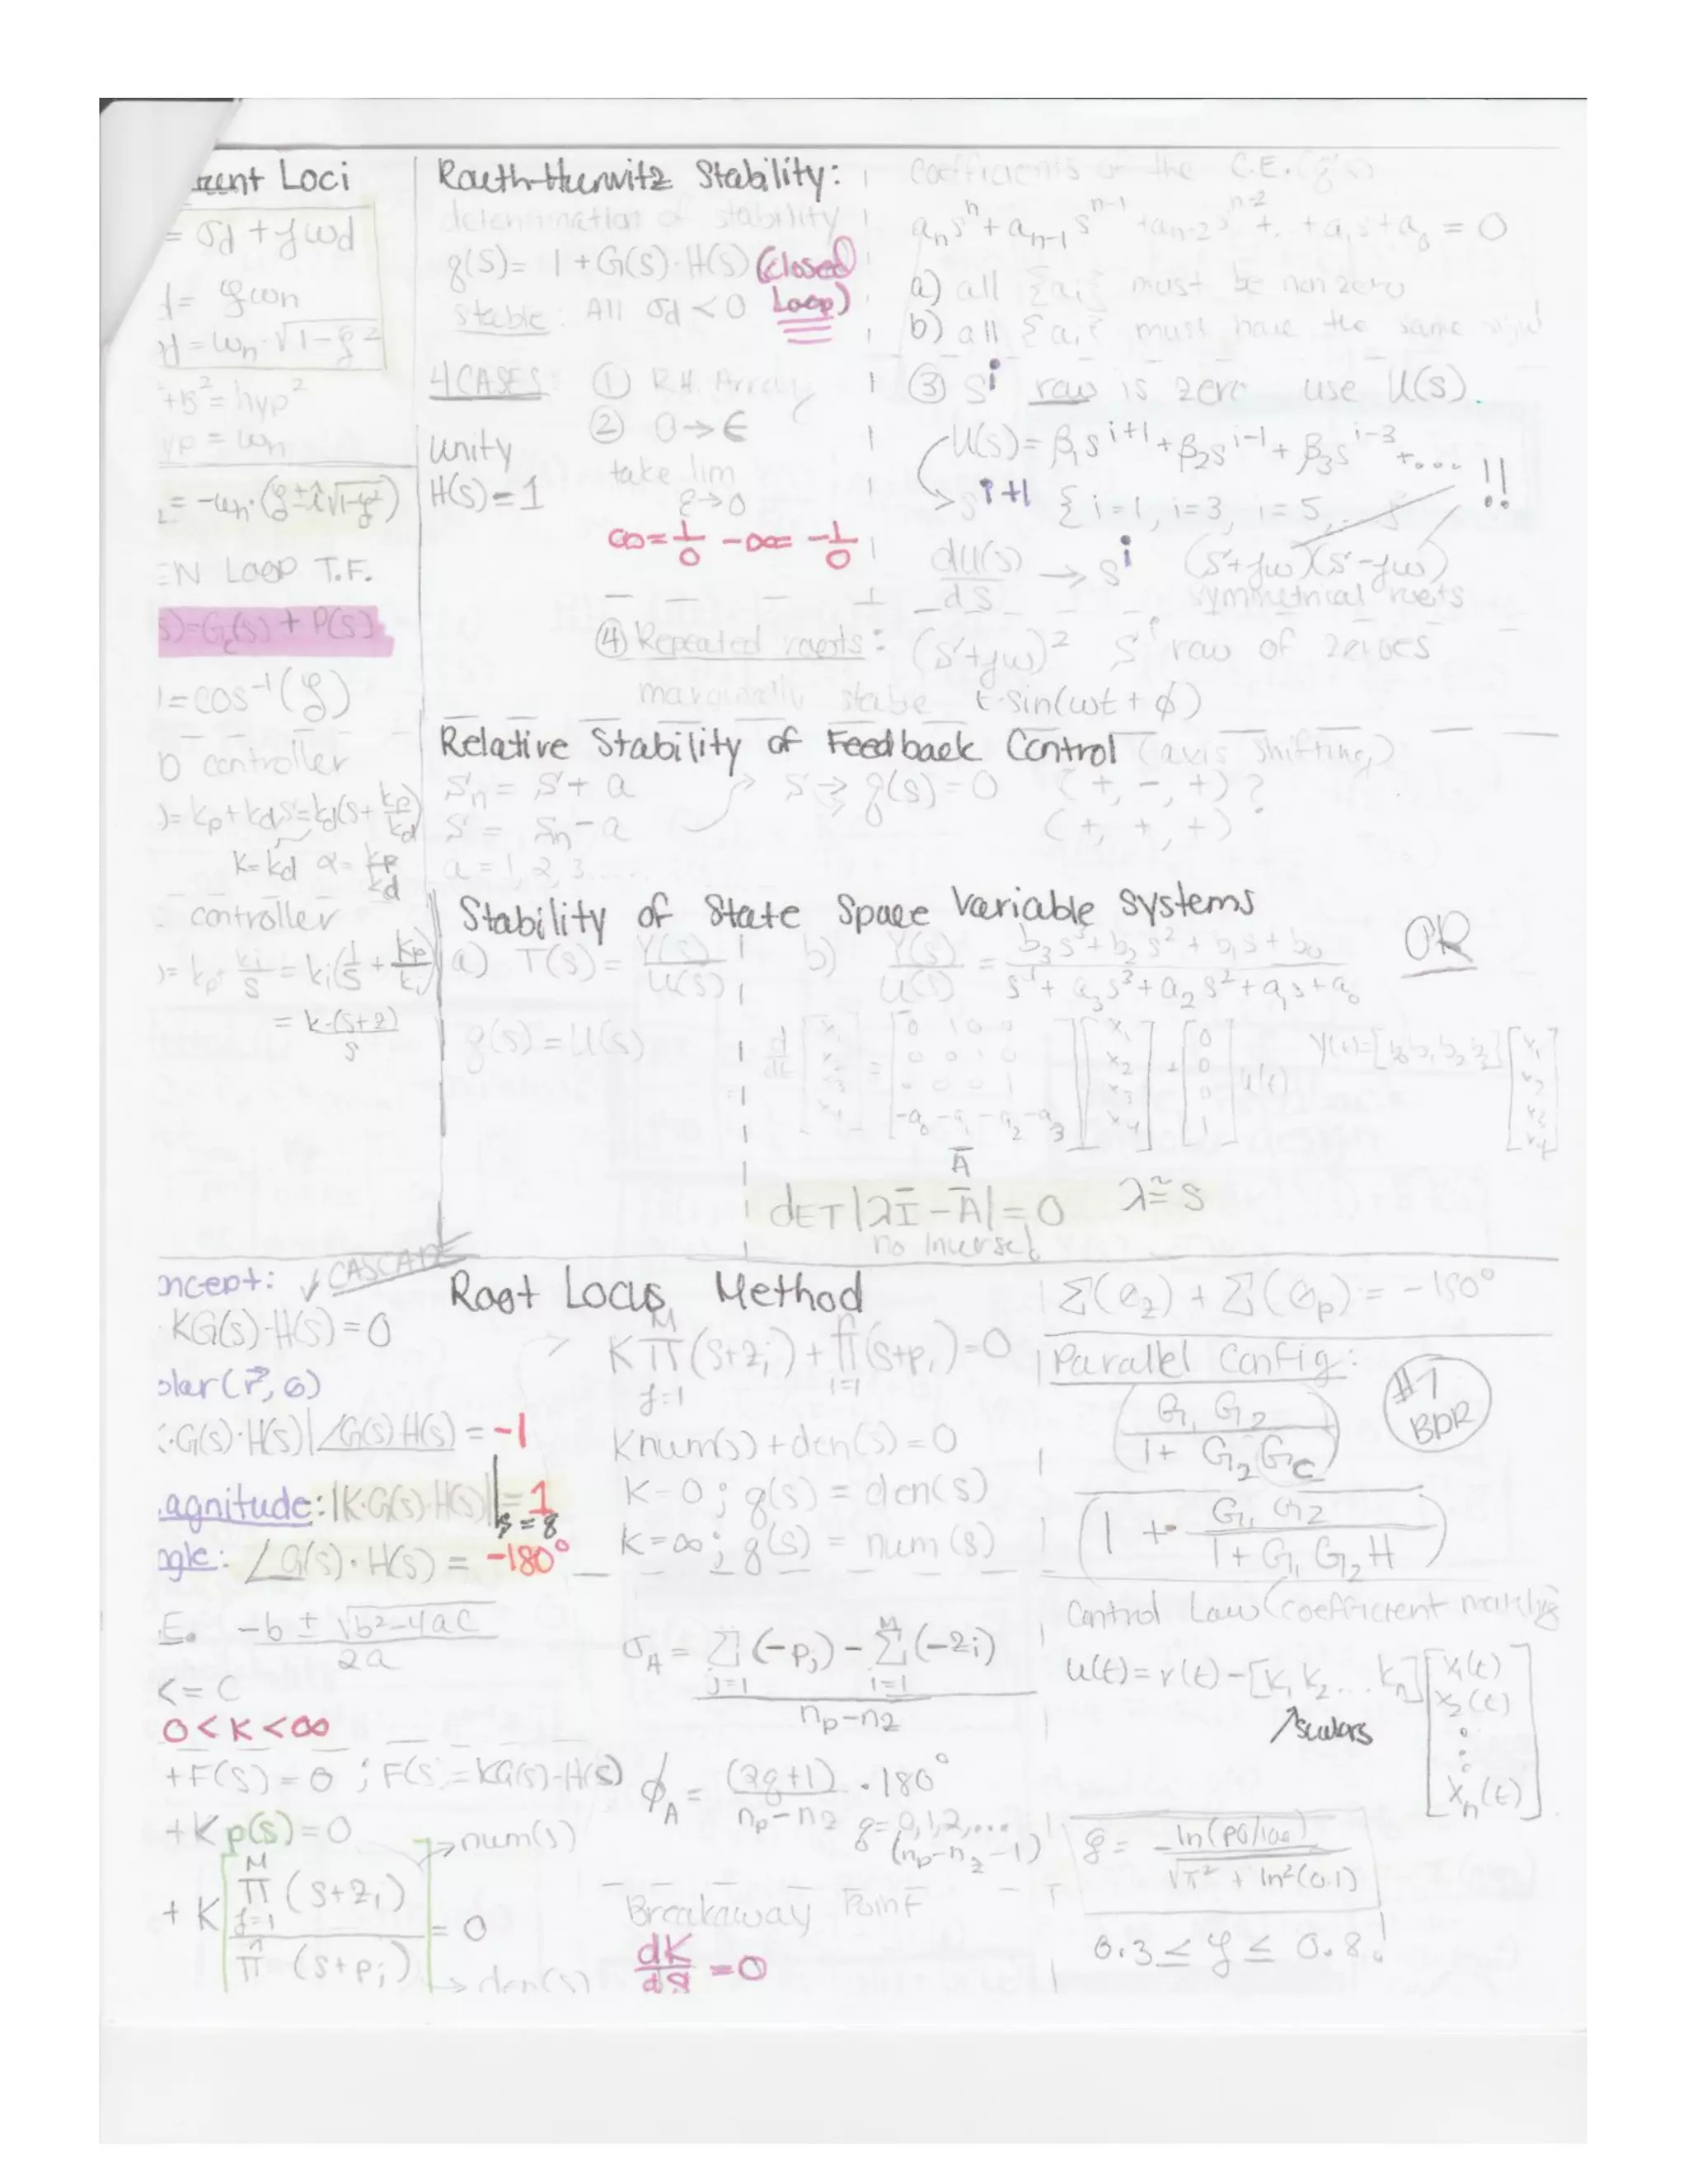 Loci
= σd + jωd
= ζωn
= ωn·√1-ζ²
+B² = hyp²
yp = ωn
= -ωn·(ζ±i√1-ζ²)
EN LOOP T.F.
s)=Gc(s) + P(s)
= cos⁻¹(ζ)
D controller
)= kp+kds = kd(s+kp/kd)
K=kd α=kp/kd
controller
)= kp+ki/s = ki(1/s + kp/ki)
= k·(s+z)/s
Routh-Hurwitz Stability:
determination of stability
q(s)= 1+G(s)·H(s) (closed Loop)
stable: All σd < 0
4 CASES: ① R.H. Array
② 0→ϵ
take lim
ε→0
unity
H(s)=1
∞=1/0 -∞= -1/0
Coefficients of the C.E. (q's)
aₙsⁿ + aₙ₋₁sⁿ⁻¹ + aₙ₋₂sⁿ⁻² + . + a₁s + a₀ = 0
a) all {ai} must be non zero
b) all {ai} must have the same
③ sⁱ row is zero use U(s).
U(s)= β₁sⁱ⁺¹ + β₂sⁱ⁻¹ + β₃sⁱ⁻³ +.... !!
sⁱ⁺¹ {i=1, i=3, i=5,
dU(s)/ds → sⁱ (s+jω)(s-jω)
symmetrical roots
④ Repeated roots: (s+jω)² s' row of zeroes
marginally stable t·sin(ωt+ϕ)
Relative Stability of Feedback Control (axis shifting)
sn = s + a s → q(s)=0 (+, -, +) ?
s = sn - a (+, +, +)
a = 1, 2, 3....
Stability of State Space Variable Systems
a) T(s) = Y(s)/U(s)
q(s) = U(s)
b) Y(s)/U(s) = (b₃s³+b₂s²+b₁s+b₀)/(s⁴+a₃s³+a₂s²+a₁s+a₀) OR
d/dt [x₁ x₂ x₃ x₄] = [0 1 0 0; 0 0 1 0; 0 0 0 1; -a₀ -a₁ -a₂ -a₃] [x₁ x₂ x₃ x₄] + [0 0 0 1] u(t) y(t)=[b₀ b₁ b₂ b₃] [x₁ x₂ x₃ x₄]
Ā
dET|λĪ - Ā| = 0 λ ≅ s
no Inverse!
oncept: ↓ CASCADE
KG(s)·H(s)=0
olar(r⃗, θ)
·G(s)·H(s)|∠G(s)H(s) = -1
agnitude: |K·G(s)·H(s)| s=q = 1
ngle: ∠G(s)·H(s) = -180°
E. (-b ± √b²-4ac)/2a
<= C
0<K<∞
+F(s) = 0 ; F(s)=KG(s)·H(s)
+K p(s)=0
→num(s)
+ K M Π j=1 (s+zi) / n Π (s+pj) = 0
→den(s)
Root Locus Method
K M Π j=1 (s+zi) + n Π i=1 (s+pi)=0
Knum(s)+den(s)=0
K=0; q(s) = den(s)
K=∞; q(s) = num(s)
σA = (Σ j=1 (-pj) - M Σ i=1 (-zi))/(np-nz)
ϕA = (2q+1)/(np-nz) · 180°
q=0,1,2,...
(np-nz-1)
Breakaway Point
dK/ds = 0
Σ(θz) + Σ(θp) = -180°
Parallel Config:
(G₁G₂/(1+G₂Gc))
(1 + G₁G₂/(1+G₁G₂H))
#1
BDR
Control Law (coefficient matching
u(t)= r(t) - [k₁ k₂ ... kn] [x₁(t) x₂(t) ⋮ xn(t)]
↗scalars
ζ = ln(PO/100)/√π² + ln²(0.1)
0.3 ≤ ζ ≤ 0.8!